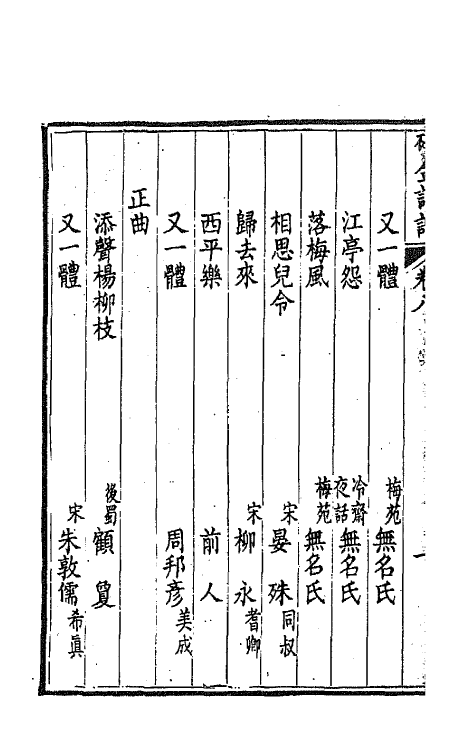 碎金詞譜 卷八
又一體 梅苑 無名氏
江亭怨 冷齋夜話 無名氏
落梅風 梅苑 無名氏
相思兒令 宋 晏殊 同叔
歸去來 宋 柳永 耆卿
西平樂 前人
又一體 周邦彥 美成
正曲
添聲楊柳枝 後蜀 顧夐
又一體 宋 朱敦儒 希真